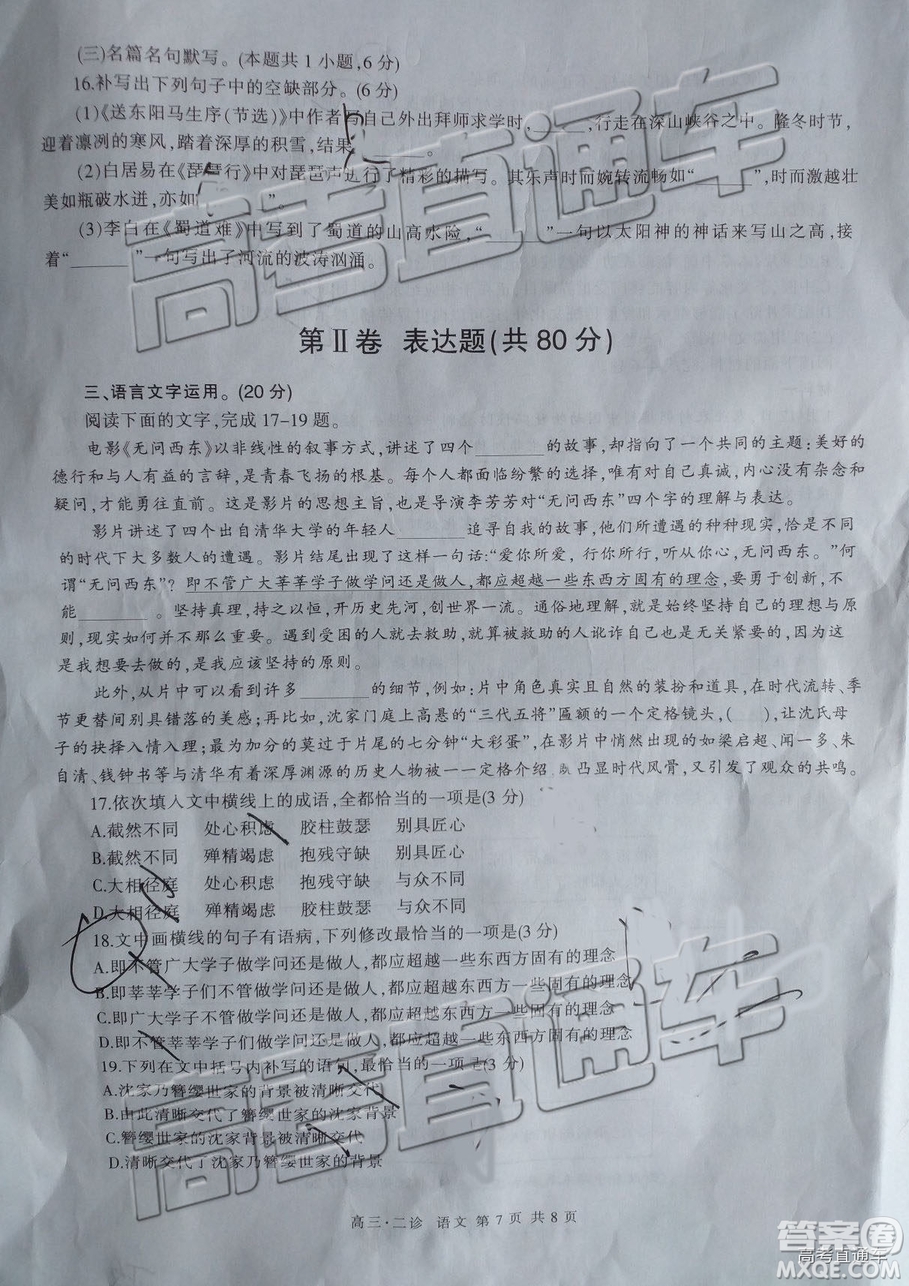 (三)名篇名句默写。(本题共1小题,6分)
16.补写出下列句子中的空缺部分。(6分)
(1)《送东阳马生序(节选)》中作者写自己外出拜师求学时,______,行走在深山峡谷之中。隆冬时节,
迎着凛冽的寒风,踏着深厚的积雪,结果______。
(2)白居易在《琵琶行》中对琵琶声进行了精彩的描写。其乐声时而婉转流畅如“______”,时而激越壮
美如瓶破水迸,亦如“______”。
(3)李白在《蜀道难》中写到了蜀道的山高水险,“______”一句以太阳神的神话来写山之高,接
着“______”一句写出了河流的波涛汹涌。
第Ⅱ卷 表达题(共80分)
三、语言文字运用。(20分)
阅读下面的文字,完成17-19题。
电影《无问西东》以非线性的叙事方式,讲述了四个______的故事,却指向了一个共同的主题:美好的
德行和与人有益的言辞,是青春飞扬的根基。每个人都面临纷繁的选择,唯有对自己真诚,内心没有杂念和
疑问,才能勇往直前。这是影片的思想主旨,也是导演李芳芳对“无问西东”四个字的理解与表达。
影片讲述了四个出自清华大学的年轻人______追寻自我的故事,他们所遭遇的种种现实,恰是不同
的时代下大多数人的遭遇。影片结尾出现了这样一句话:“爱你所爱,行你所行,听从你心,无问西东。”何
谓“无问西东”?即不管广大莘莘学子做学问还是做人,都应超越一些东西方固有的理念,要勇于创新,不
能______。坚持真理,持之以恒,开历史先河,创世界一流。通俗地理解,就是始终坚持自己的理想与原
则,现实如何并不那么重要。遇到受困的人就去救助,就算被救助的人讹诈自己也是无关紧要的,因为这
是我想要去做的,是我应该坚持的原则。
此外,从片中可以看到许多______的细节,例如:片中角色真实且自然的装扮和道具,在时代流转、季
节更替间别具错落的美感;再比如,沈家门庭上高悬的“三代五将”匾额的一个定格镜头,(  ),让沈氏母
子的抉择入情入理;最为加分的莫过于片尾的七分钟“大彩蛋”,在影片中悄然出现的如梁启超、闻一多、朱
自清、钱钟书等与清华有着深厚渊源的历史人物被一一定格介绍,既凸显时代风骨,又引发了观众的共鸣。
17.依次填入文中横线上的成语,全都恰当的一项是(3分)
A.截然不同 处心积虑 胶柱鼓瑟 别具匠心
B.截然不同 殚精竭虑 抱残守缺 别具匠心
C.大相径庭 处心积虑 抱残守缺 与众不同
D.大相径庭 殚精竭虑 胶柱鼓瑟 与众不同
18.文中画横线的句子有语病,下列修改最恰当的一项是(3分)
A.即不管广大学子做学问还是做人,都应超越一些东西方固有的理念
B.即莘莘学子们不管做学问还是做人,都应超越东西方一些固有的理念
C.即广大学子不管做学问还是做人,都应超越东西方一些固有的理念
D.即不管莘莘学子们做学问还是做人,都应超越一些东西方固有的理念
19.下列在文中括号内补写的语句,最恰当的一项是(3分)
A.沈家乃簪缨世家的背景被清晰交代
B.由此清晰交代了簪缨世家的沈家背景
C.簪缨世家的沈家背景被清晰交代
D.清晰交代了沈家乃簪缨世家的背景
高三·二诊 语文 第7页 共8页
高考直通车
高考直通车
答案圈
高考直通车
MXQE.COM